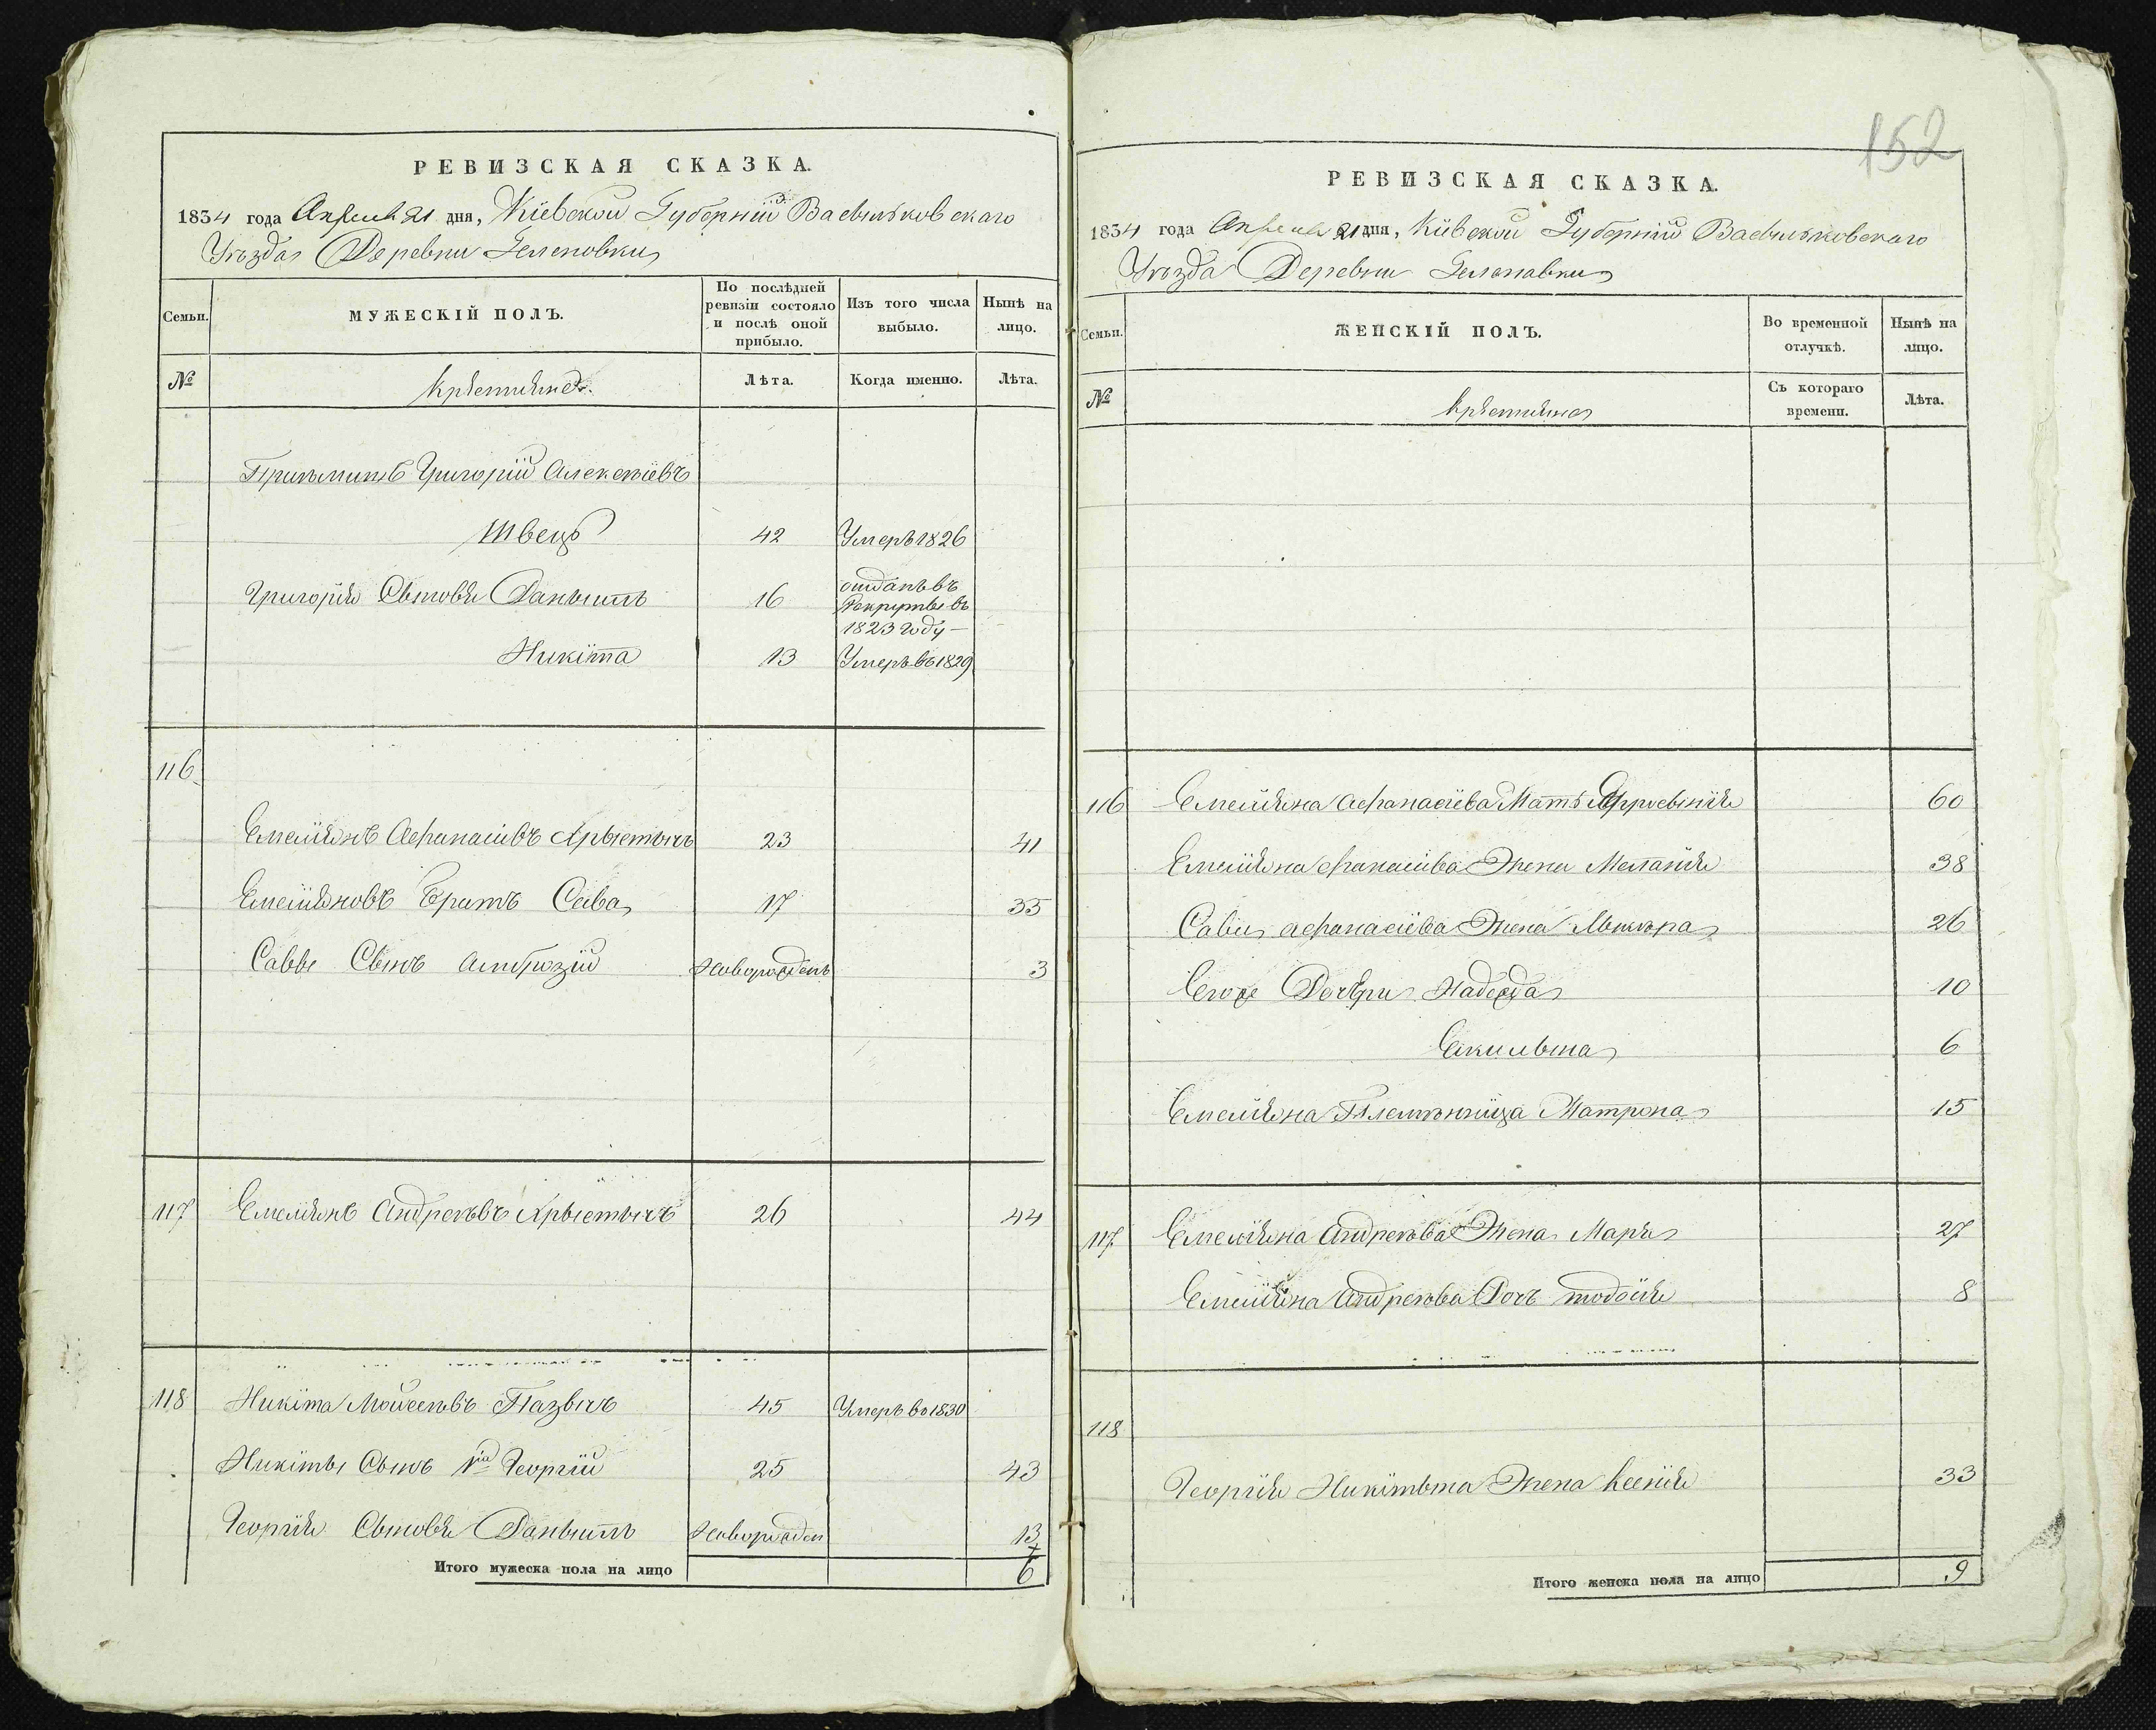 РЕВИЗСКАЯ СКАЗКА.
1834 года Апреля 21 дня, Кіевской Губерніи Васильковского
Уѣзда Деревни Гелековки
Семьи.
МУЖЕСКІЙ ПОЛЪ.
По послѣдней ревизіи состояло и послѣ оной прибыло.
Изъ того числа выбыло.
Нынѣ на лицо.
№
Крѣстьяне
Лѣта.
Когда именно.
Лѣта.
Григорій Алексѣевъ
Швецъ 42 Умеръ 1826
Григорія Сыновья Даныилъ 16 отданъ въ Рекруты въ 1823 году —
Никіта 13 Умеръ въ 1829
116
Емеліянъ Афанасіевъ Хрыстычъ 23 41
Емеліяновъ Братъ Сава 17 35
Саввы Сынъ Амброзій Новорожденъ 3
117 Емеліянъ Андреѣвъ Хрыстычъ 26 44
118 Никіта Мойсеѣвъ Пазычъ 45 Умеръ во 1830
Никіты Сынъ 1й Георгій 25 43
Георгія Сыновья Даныилъ Новорожден 13
Итого мужеска пола на лицо 6
152
РЕВИЗСКАЯ СКАЗКА.
1834 года Апреля 21 дня, Кіевской Губерніи Васильковского
Уѣзда Деревни
Семьи.
ЖЕНСКІЙ ПОЛЪ.
Во временной отлучкѣ.
Нынѣ на лицо.
№
Крѣстьяне
Съ котораго времени.
Лѣта.
116 Емеліяна Афанасіева Мать 60
Емеліяна Афанасіева Жена Меланія 38
Савы Афанасіева Жена 26
Его же Дочери Надежда 10
6
Емеліяна Племѣнница Матрона 15
117 Емеліяна Андреѣва Жена Марья 27
Емеліяна Андреѣва Дочъ Тодосія 8
118
Георгія Никітына Жена Ксенія 33
Итого женска пола на лицо 9